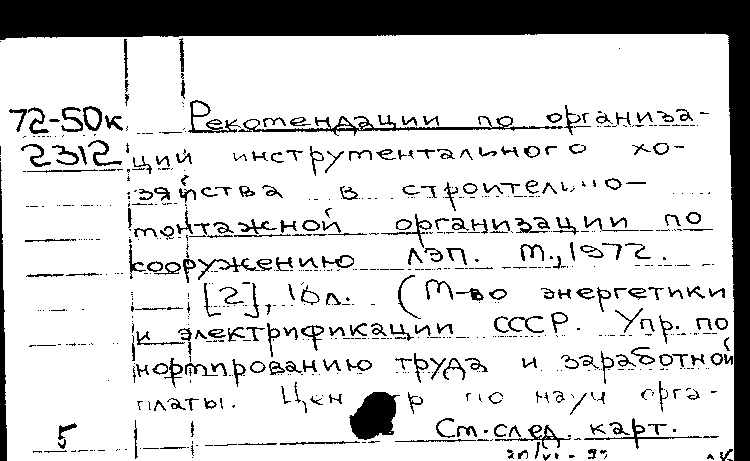 72-50к
2312
Рекомендации по организа-
ции инструментального хо-
зяйства в строительно-
монтажной организации по
сооружению ЛЭП. М., 1972.
[2], 16л. (М-во энергетики
и электрификации СССР. Упр. по
нормированию труда и заработной
платы. Центр по науч орга-
См. след. карт.
5